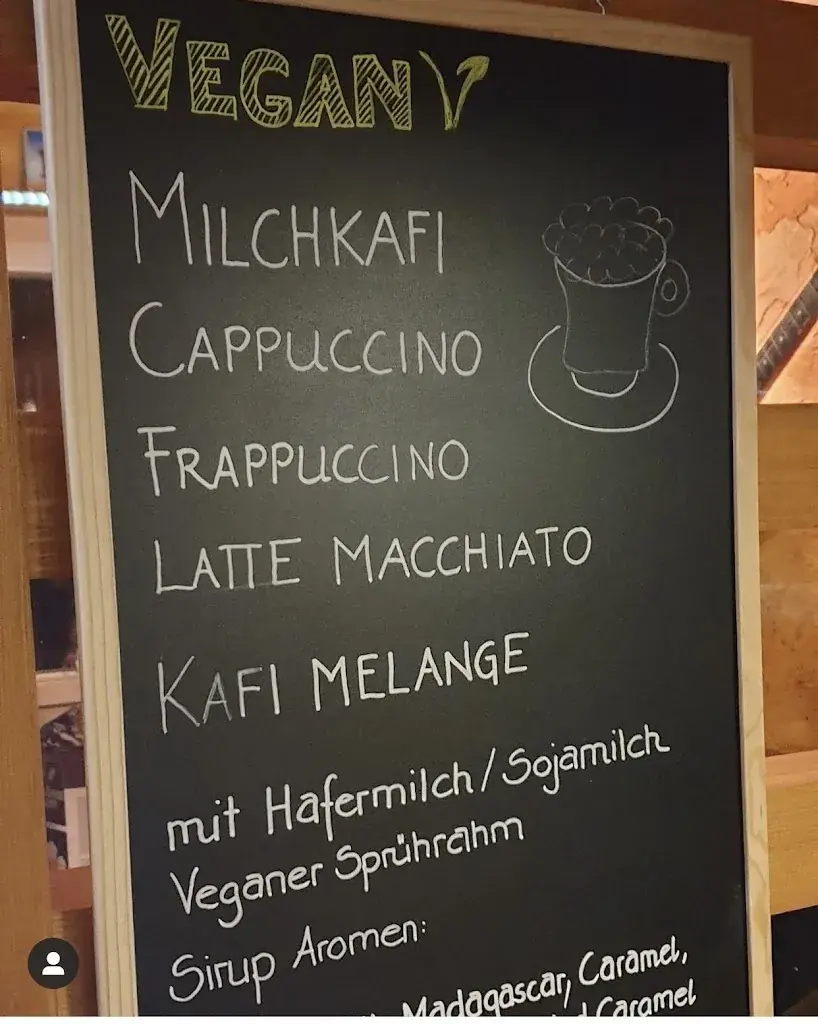 VEGAN
MILCHKAFI
CAPPUCCINO
FRAPPUCCINO
LATTE MACCHIATO
KAFI MELANGE
mit Hafermilch/Sojamilch
Veganer Sprührahm
Sirup Aromen:
Madagascar, Caramel,
Caramel